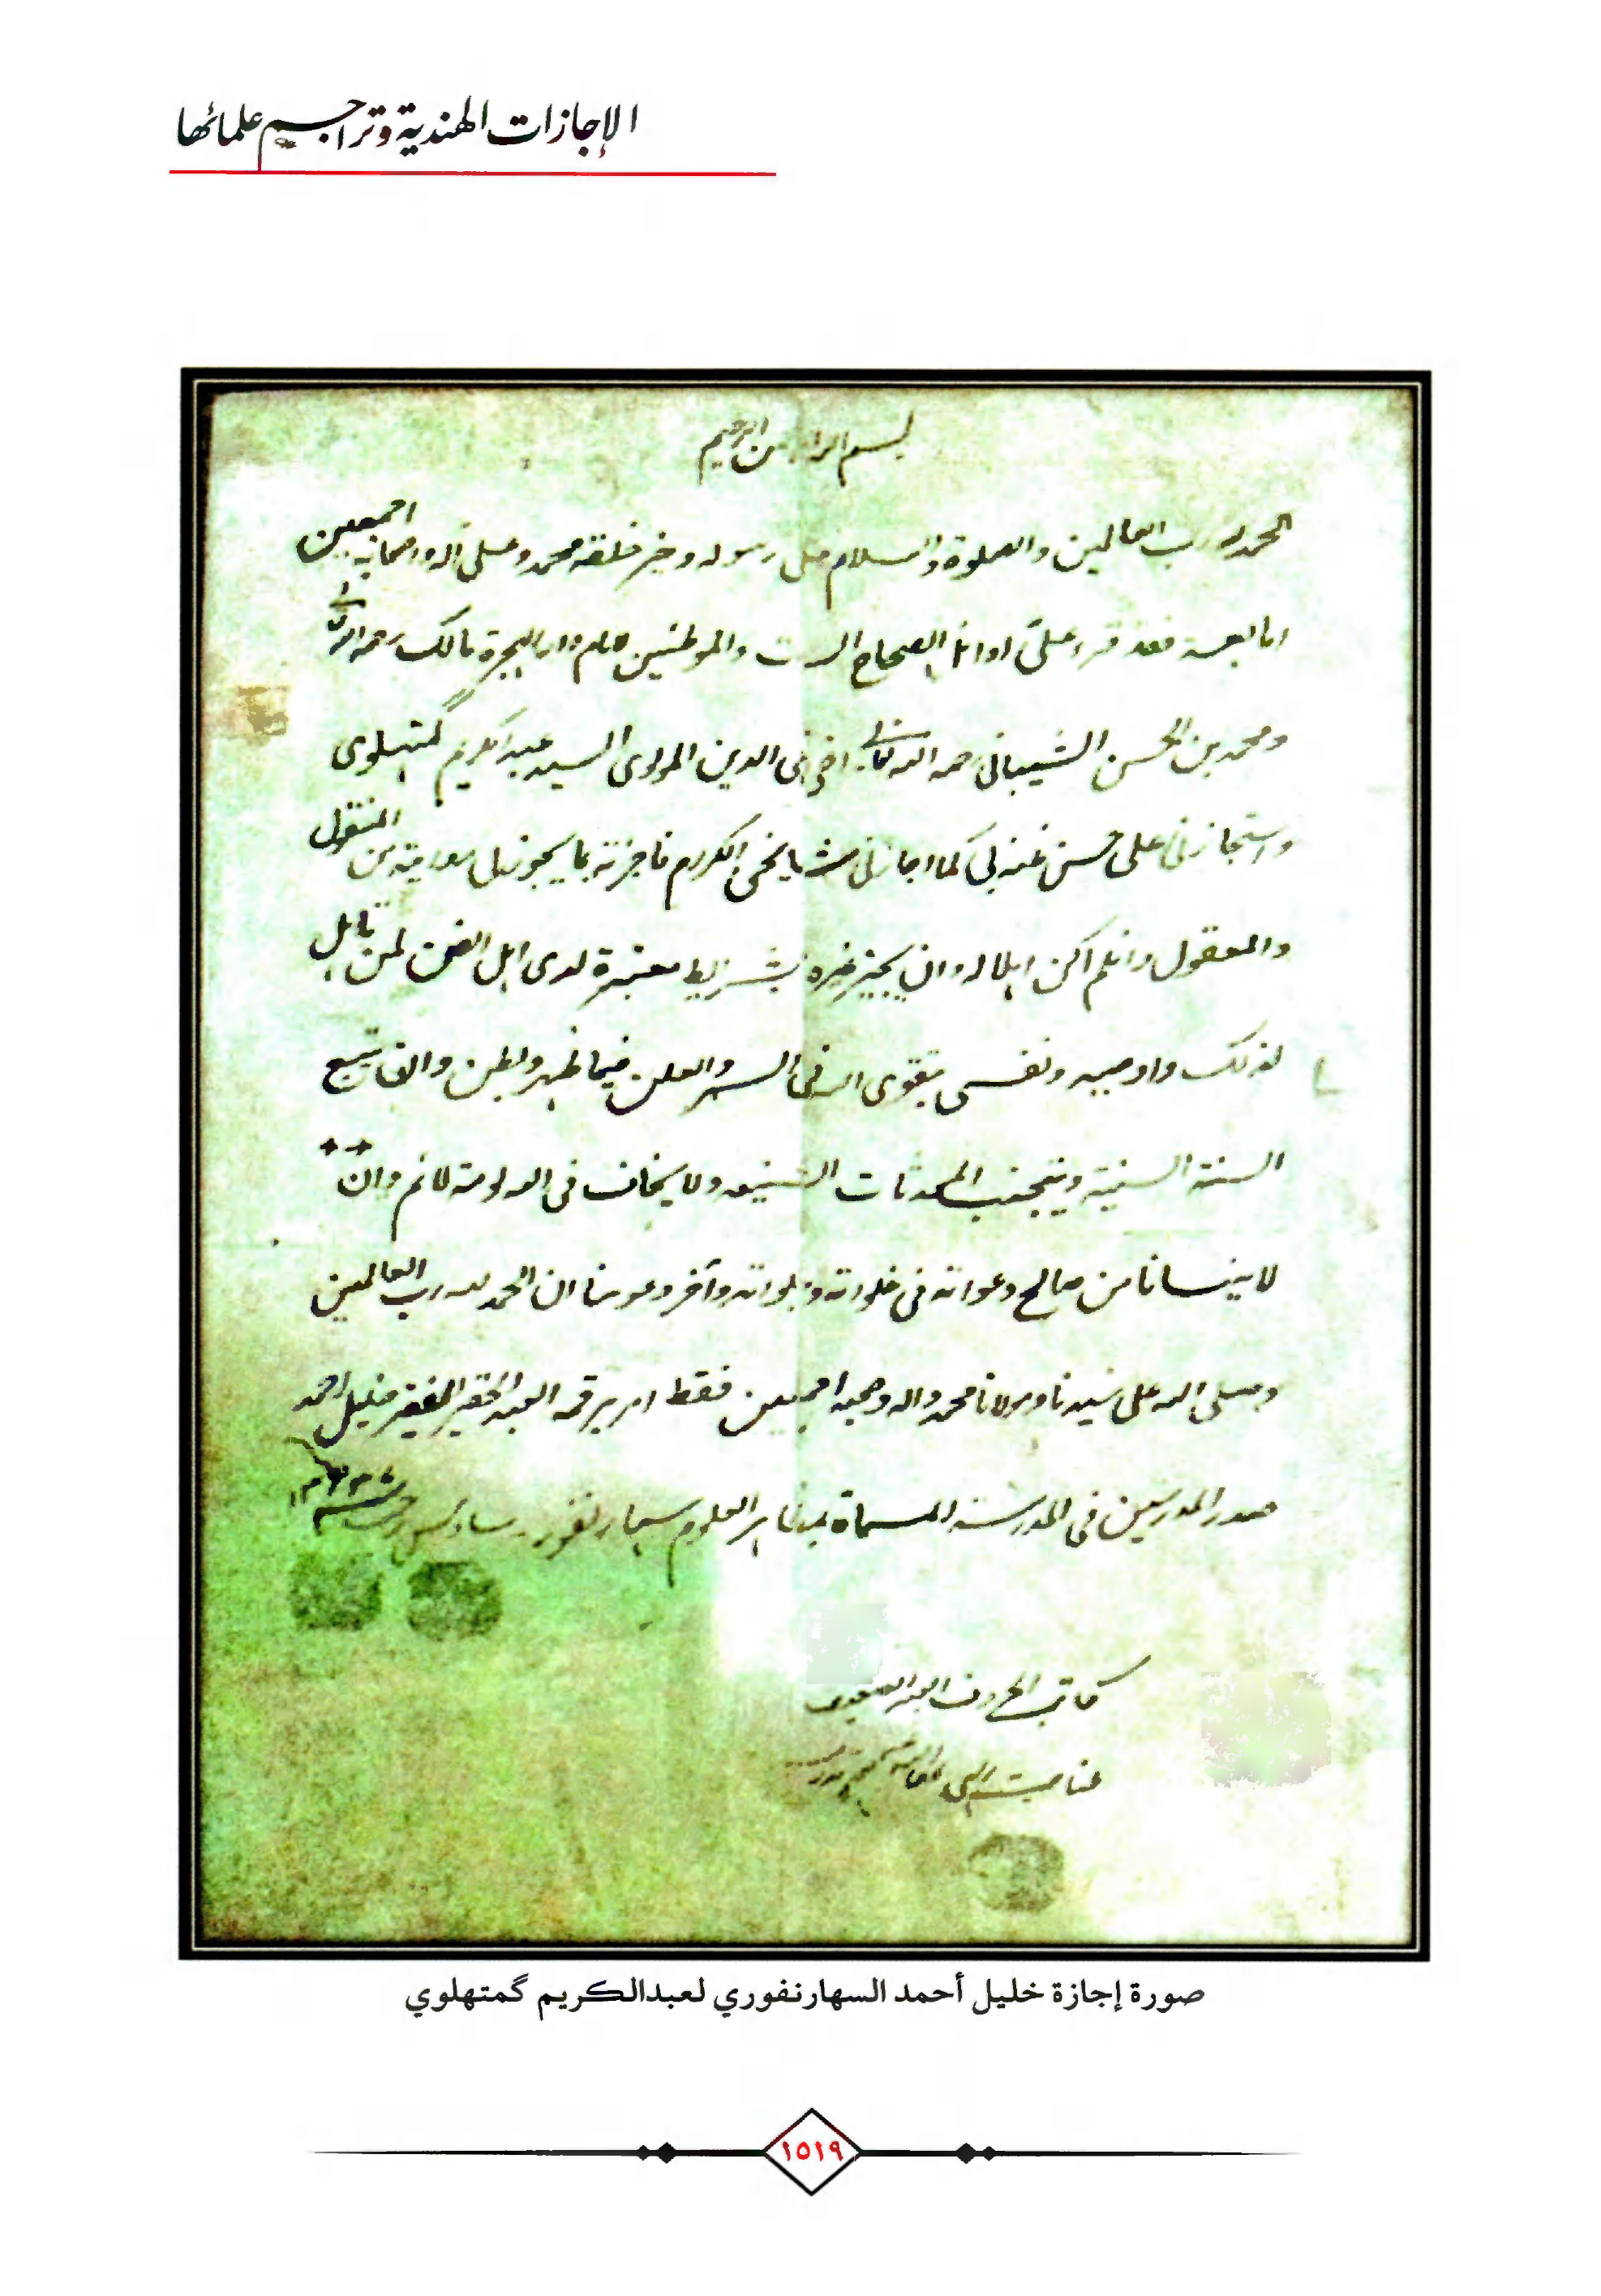 الإجازات الهندية وتراجيم علمائها
بسم الله الرحمن الرحيم
الحمد لله رب العالمين والصلوة والسلام على رسوله وخير خلقه محمد وعلى آله واصحابه اجمعين
اما بعد فقد قرء علىّ اوائل الصحاح الست والموطئين للامام دار الهجرة مالك رحمه الله تعالى
ومحمد بن الحسن الشيباني رحمه الله تعالى اخي في الدين المولوى السيد عبد الكريم گمتهلوى
واستجازني على حسن ظنه لي كما اجازني مشايخي الكرام فاجزته بما يجوز لي روايته من المنقول
والمعقول وان لم اكن اهلا له وان يجيز غيره بشرايط معتبرة لدى اهل الفن لمن تاهل
لذلك واوصيه ونفسي بتقوى الله في السر والعلن فيما ظهر وبطن وان يتبع
السنة السنية ويتجنب المحدثات الشنيعة ولا يخاف في الله لومة لائم وان
لا ينسانا من صالح دعواته في خلواته وجلواته وآخر دعوينا ان الحمد لله رب العالمين
وصلى الله على سيدنا ومولانا محمد واله وصحبه اجمعين فقط امر برقمه العبد الحقير المفتقر خليل احمد
صدر المدرسين في المدرسة المسماة بمظاهر العلوم سهارنفور
كاتب الحروف العبد
عنايت الهى
صورة إجازة خليل أحمد السهارنفوري لعبدالكريم گمتهلوي
١٥١٩